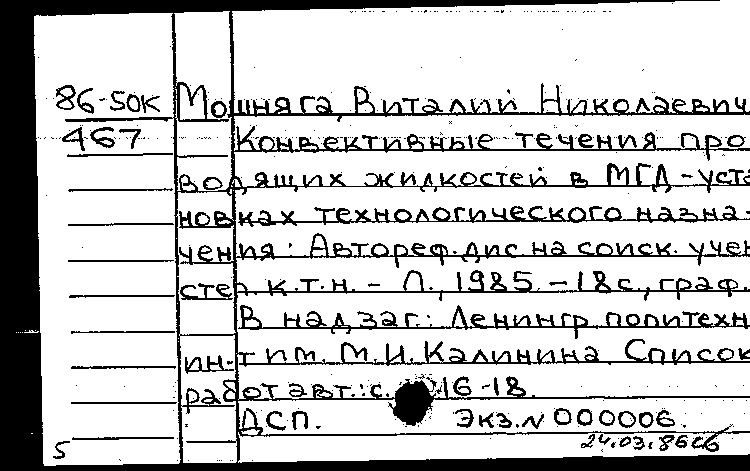 86-50К Мошняга, Виталий Николаевич
467 Конвективные течения про-
водящих жидкостей в МГД-уста
новках технологического назна-
чения: Автореф.дис. на соиск. учен
степ. к.т.н. - Л., 1985. - 18 с., граф.
В надзаг.: Ленингр. политехн
ин-т им. М.И. Калинина. Список
работ авт.: с. 16-18.
ДСП. Экз.N 000006.
24.03.86
5